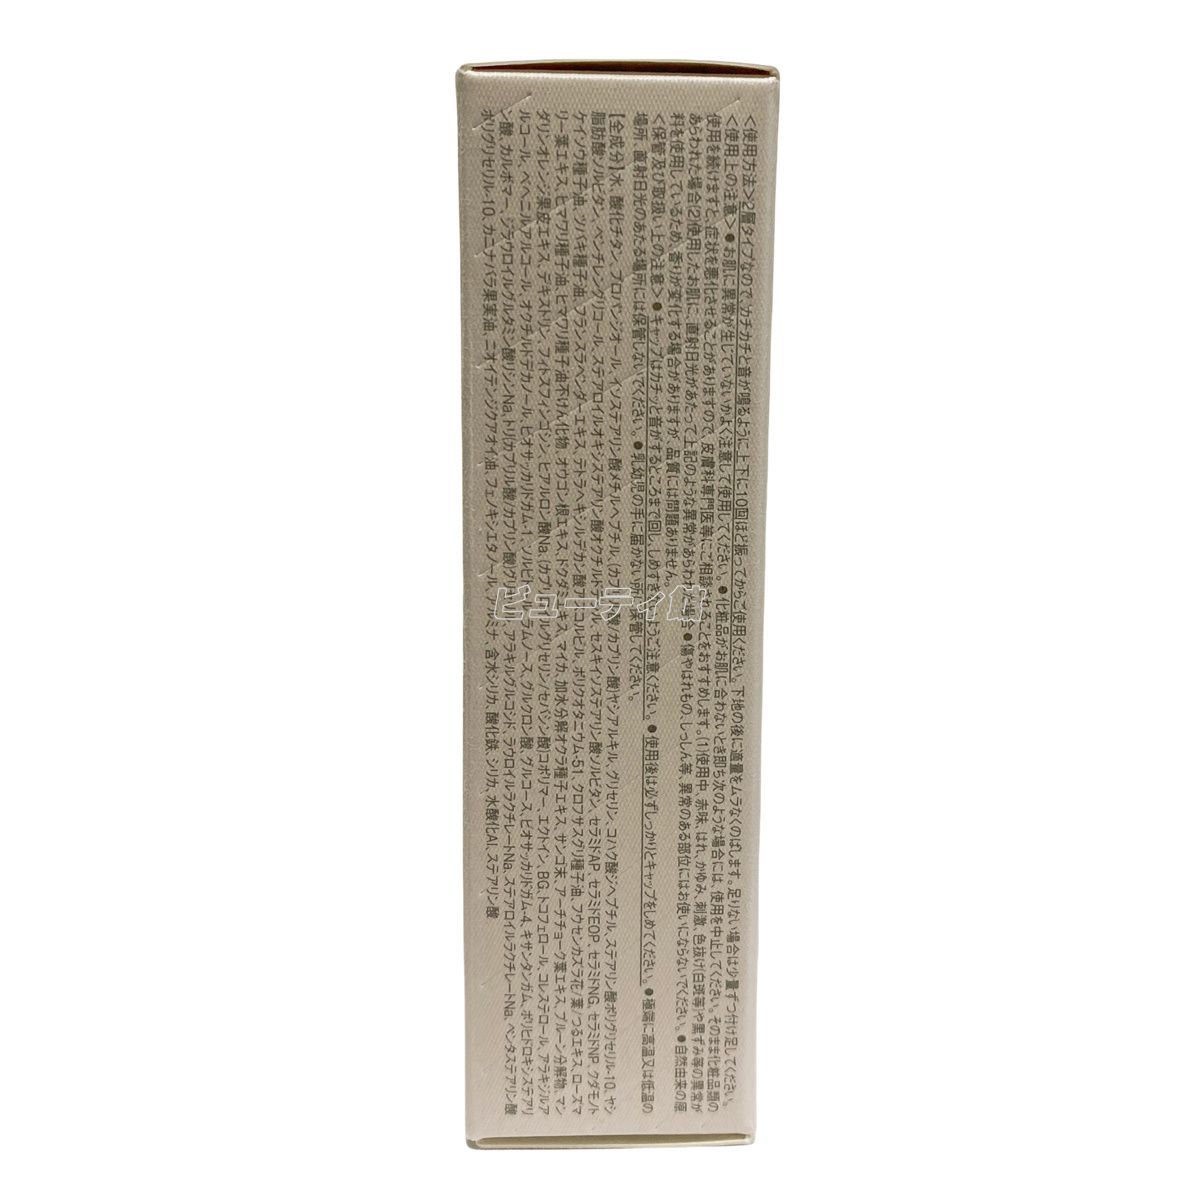 <使用方法>2層タイプなので、カチカチと音が鳴るように上下に10回ほど振ってからご使用ください。下地の後に適量をムラなくのばします。足りない場合は少量ずつ付け足してください。
<使用上の注意>●お肌に異常が生じていないかよく注意して使用してください。●化粧品がお肌に合わないとき即ち次のような場合には、使用を中止してください。そのまま化粧品類の
使用を続けますと、症状を悪化させることがありますので、皮膚科専門医等にご相談されることをおすすめします。(1)使用中、赤味、はれ、かゆみ、刺激、色抜け(白斑等)や黒ずみ等の異常が
あらわれた場合(2)使用したお肌に、直射日光があたって上記のような異常があらわれた場合●傷やはれもの、しっしん等、異常のある部位にはお使いにならないでください。●自然由来の原
料を使用しているため、香りが変化する場合がありますが、品質には問題ありません。
<保管及び取扱い上の注意>●キャップはカチッと音がするところまで回し、しめすぎ ようご注意ください。●使用後は必ずしっかりとキャップをしめてください。●極端に高温又は低温の
場所、直射日光のあたる場所には保管しないでください。●乳幼児の手に届かない所に保管してください。
【全成分】水、酸化チタン、プロパンジオール、イソステアリン酸メチルヘプチル、(カプリル酸/カプリン酸)ヤシアルキル、グリセリン、コハク酸ジヘプチル、ステアリン酸ポリグリセリル-10、ヤシ
脂肪酸ソルビタン、ペンチレングリコール、ステアロイルオキシステアリン酸オクチルドデシル、セスキイソステアリン酸ソルビタン、セラミドAP、セラミドEOP、セラミドNG、セラミドNP、クダモノト
ケイソウ種子油、ツバキ種子油、フランスラベンダーエキス、テトラヘキシルデカン酸アスコルビル、ポリクオタニウム-51、クロフサスグリ種子油、フウセンカズラ花/葉/つるエキス、ローズマ
リー葉エキス、ヒマワリ種子油、ヒマワリ種子油不けん化物、オウゴン根エキス、ドクダミエキス、マイカ、加水分解オクラ種子エキス、サンゴ末、アーチチョーク葉エキス、プルーン分解物、マン
ダリンオレンジ果皮エキス、デキストリン、フィトスフィンゴシン、ヒアルロン酸Na、(カプリリルグリセリン/セバシン酸)コポリマー、エクトイン、BG、トコフェロール、コレステロール、アラキジルア
ルコール、ベヘニルアルコール、オクチルドデカノール、ビオサッカリドガム-1、ソルビトール、ラムノース、グルクロン酸、グルコース、ビオサッカリドガム-4、キサンタンガム、ポリヒドロキシステアリ
ン酸、カルボマー、ジラウロイルグルタミン酸リシンNa、トリ(カプリル酸/カプリン酸)グリセリル、アラキルグルコシド、ラウロイルラクチレートNa、ステアロイルラクチレートNa、ペンタステアリン酸
ポリグリセリル-10、カニナバラ果実油、ニオイテンジクアオイ油、フェノキシエタノール、アルミナ、含水シリカ、酸化鉄、シリカ、水酸化Al、ステアリン酸
ビューティ館